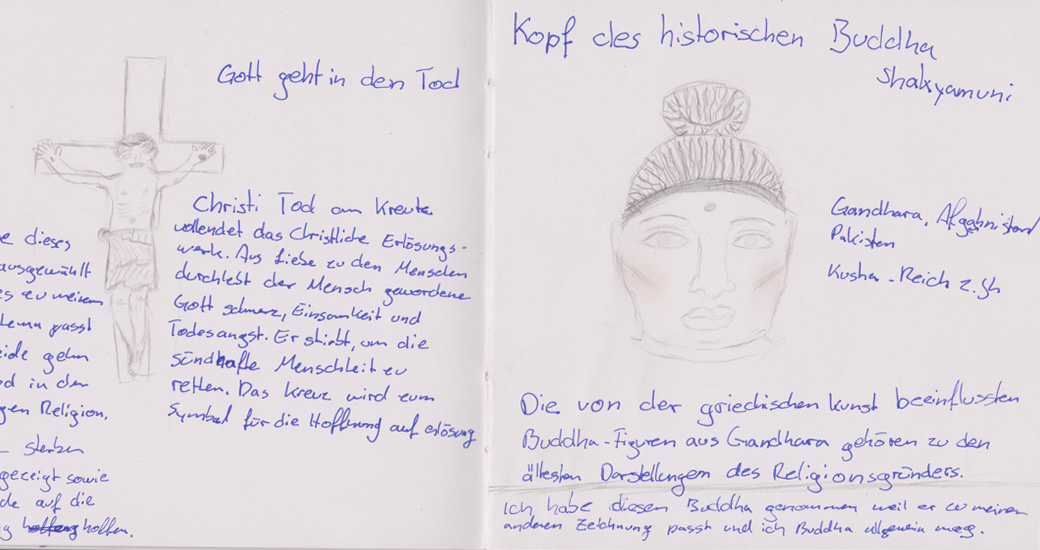 Gott geht in den Tod
Christi Tod am Kreutz
vollendet das Christliche Erlösungs-
werk. Aus Liebe zu den Menschen
durchlebt der Mensch gewordene
Gott schmerz, Einsamkeit und
Todesangst. Er stirbt, um die
sündhafte Menschheit zu
retten. Das Kreuz wird zum
Symbol für die Hoffnung auf erlösung
dieses
ausgewählt
es zu meinem
passt
gehn
in den
gen Religion.
sterben
gezeigt sowie
de auf die
hoffen.
Kopf des historischen Buddha
Shakyamuni
Gandhara, Afgahnistan
Pakistan
Kusha-Reich 2. Jh
Die von der griechischen kunst beeinflussten
Buddha-Figuren aus Gandhara gehören zu den
ältesten Darstellungen des Religionsgründers.
Ich habe diesen Buddha genommen weil er zu meinem
anderen Zeichnung passt und ich Buddha allgemein mag.